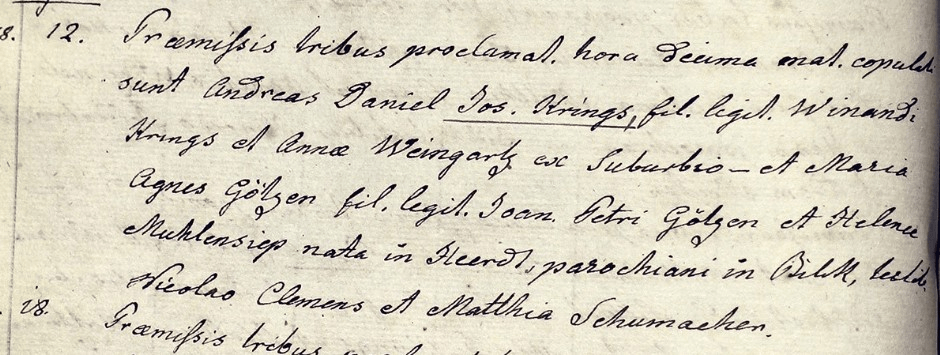 8. 12. Præmissis tribus proclamat. hora decima mat. copulati
sunt Andreas Daniel Jos. Krings, fil. legit. Winandi
Krings et Annæ Weingartz ex Suburbio – et Maria
Agnes Götzen fil. legit. Joan. Petri Götzen et Helenæ
Muhlensiep nata in Heerdt, parochiani in Bilk, testib.
Nicolao Clemens et Matthia Schumacher.
18. Præmissis tribus